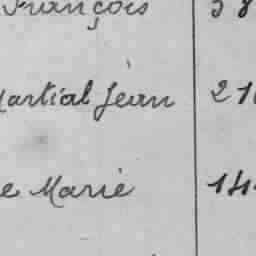 François 38
Martial Jean 21
e Marie 14